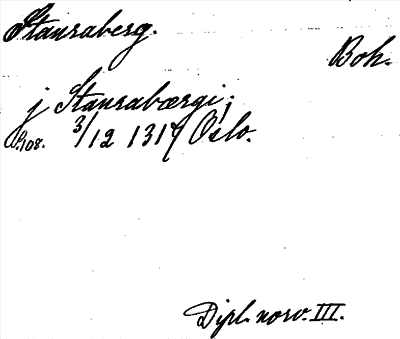 Stauraberg.
Boh.
j Staurabærgi;
S. 108. 3/12 1317 Oslo.
Dipl. norv. III.